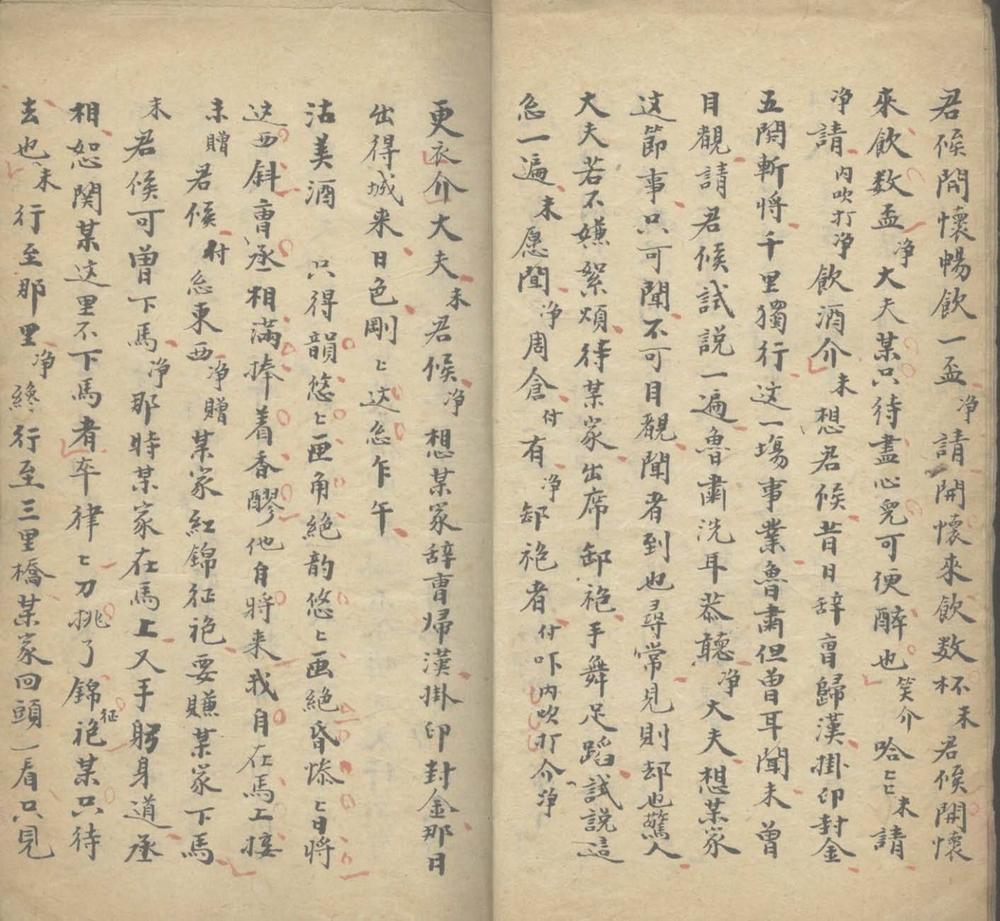 君候閒懷暢飲一盃净請開懷來飲数杯末君候開懷
來飲数盃净大夫某只待盡心児可便醉也笑介哈〻末請
净請内吹打净飲酒介末想君候昔日辞曹歸漢掛印封金
五関斬将千里獨行这一塲事業魯肅但曽耳聞未曽
目觀請君候試説一遍魯肅洗耳恭聽净大夫想某家
这節事只可聞不可目覩聞者到也尋常見則却也驚人
大夫若不嫌絮煩待某家出席卸袍手舞足蹈試説這
忩一遍末愿聞净周倉付有净卸袍者付吓内吹打介净
更衣介大夫末君候净想某家辞曹帰漢掛印封金那日
出得城来日色剛〻这忩乍午
沽美酒 只得韻悠〻画角絶韵悠〻画絶昏惨〻日将
这西斜曹丞相滿捧着香醪他自将来我自在馬上接
末贈君候付忩東西净贈某家紅錦征袍要賺某家下馬
末君候可曽下馬净那時某家在馬上又手躬身道丞
相恕関某这里不下馬者卒律〻刀挑了錦征袍某只待
去也末行至那里净終行至三里橋某家回頭一看只見